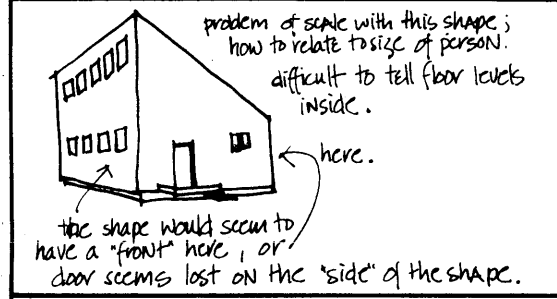 problem of scale with this shape;
how to relate to size of person.
difficult to tell floor levels
inside.
here.
the shape would seem to
have a "front" here, or
door seems lost on the "side" of the shape.